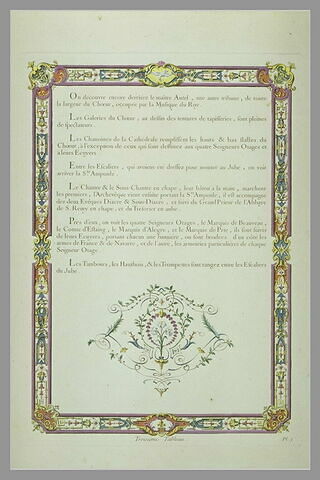 On découvre encore derriere le maitre Autel, une autre tribune, de toute
la largeur du Chœur, occupée par la Musique du Roy.
Les Galeries du Chœur, au dessus des tentures de tapisseries, sont pleines
de spectateurs.
Les Chanoines de la Cathedrale remplissent les hauts & bas stalles du
Chœur, à l'exception de ceux qui sont destinées aux quatre Seigneurs Otages et
à leurs Ecuyers.
Entre les Escaliers, qui avoient été dressez pour monter au Jubé, on voit
arriver la Ste. Ampoule.
Le Chantre & le Sous Chantre en chape, leur bâton à la main, marchent
les premiers, l'Archevêque vient ensuite portant la Ste. Ampoule, il est accompagné
des deux Evêques Diacre & Sous-Diacre, en suite du Grand Prieur de l'Abbaye
de S. Remy en chape, et du Trésorier en aube.
Près d'eux, on voit les quatre Seigneurs Otages, le Marquis de Beauveau,
le Comte d'Estaing, le Marquis d'Alegre, et le Marquis de Prie, ils sont suivis
de leurs Ecuyers, portant chacun une banniere, où sont brodées d'un côté les
armes de France & de Navarre, et de l'autre, les armoiries particulieres de chaque
Seigneur Otage.
Les Tambours, les Hautbois, & les Trompettes sont rangez entre les Escaliers
du Jubé.
Troisieme Tableau.